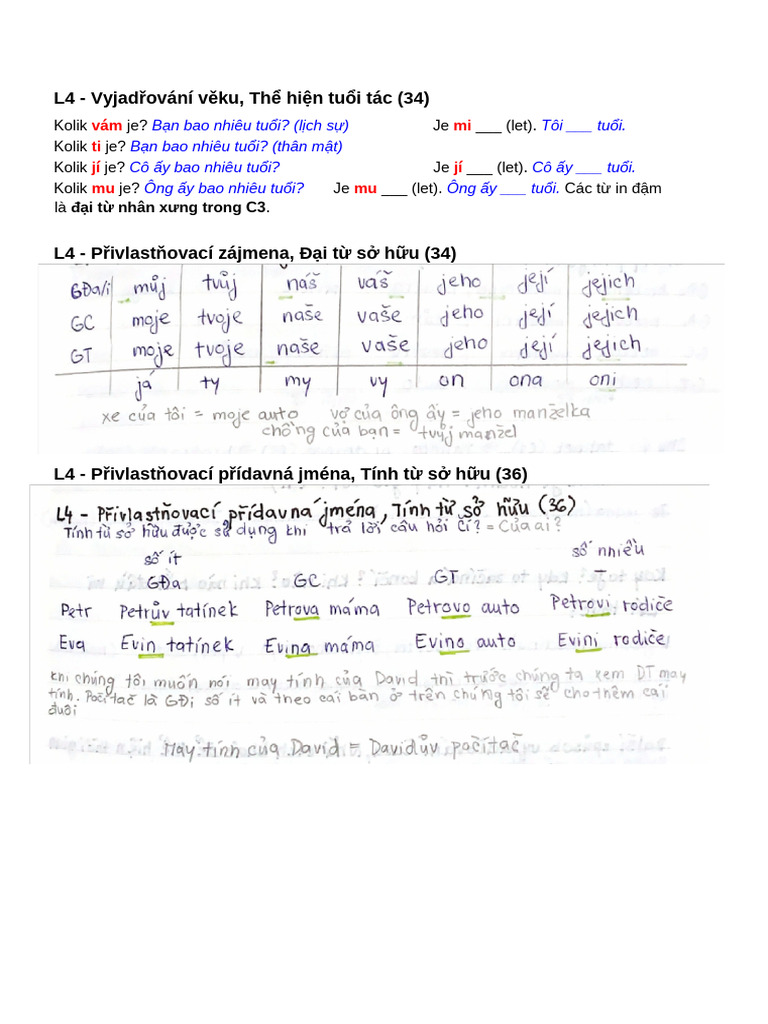 L4 - Vyjadřování věku, Thể hiện tuổi tác (34)
Kolik vám je? Bạn bao nhiêu tuổi? (lịch sự) Je mi ___ (let). Tôi ___ tuổi.
Kolik ti je? Bạn bao nhiêu tuổi? (thân mật)
Kolik jí je? Cô ấy bao nhiêu tuổi? Je jí ___ (let). Cô ấy ___ tuổi.
Kolik mu je? Ông ấy bao nhiêu tuổi? Je mu ___ (let). Ông ấy ___ tuổi. Các từ in đậm
là đại từ nhân xưng trong C3.
L4 - Přivlastňovací zájmena, Đại từ sở hữu (34)
GĐa/i můj tvůj náš váš jeho její jejich
GC moje tvoje naše vaše jeho její jejich
GT moje tvoje naše vaše jeho její jejich
já ty my vy on ona oni
xe của tôi = moje auto vợ của ông ấy = jeho manželka
chồng của bạn = tvůj manžel
L4 - Přivlastňovací přídavná jména, Tính từ sở hữu (36)
L4 - Přivlastňovací přídavná jména, Tính từ sở hữu (36)
Tính từ sở hữu được sử dụng khi trả lời câu hỏi Čí? = Của ai?
số ít số nhiều
GĐa GC GT T
Petr Petrův tatínek Petrova máma Petrovo auto Petrovi rodiče
Eva Evin tatínek Evina máma Evino auto Evini rodiče
khi chúng tôi muốn nói may tính của David thì trước chúng ta xem DT may
tính. Počítač là GĐi số ít và theo cái bàn ở trên chúng tôi sẽ cho thêm cái
đuôi
May tính của David = Davidův počítač